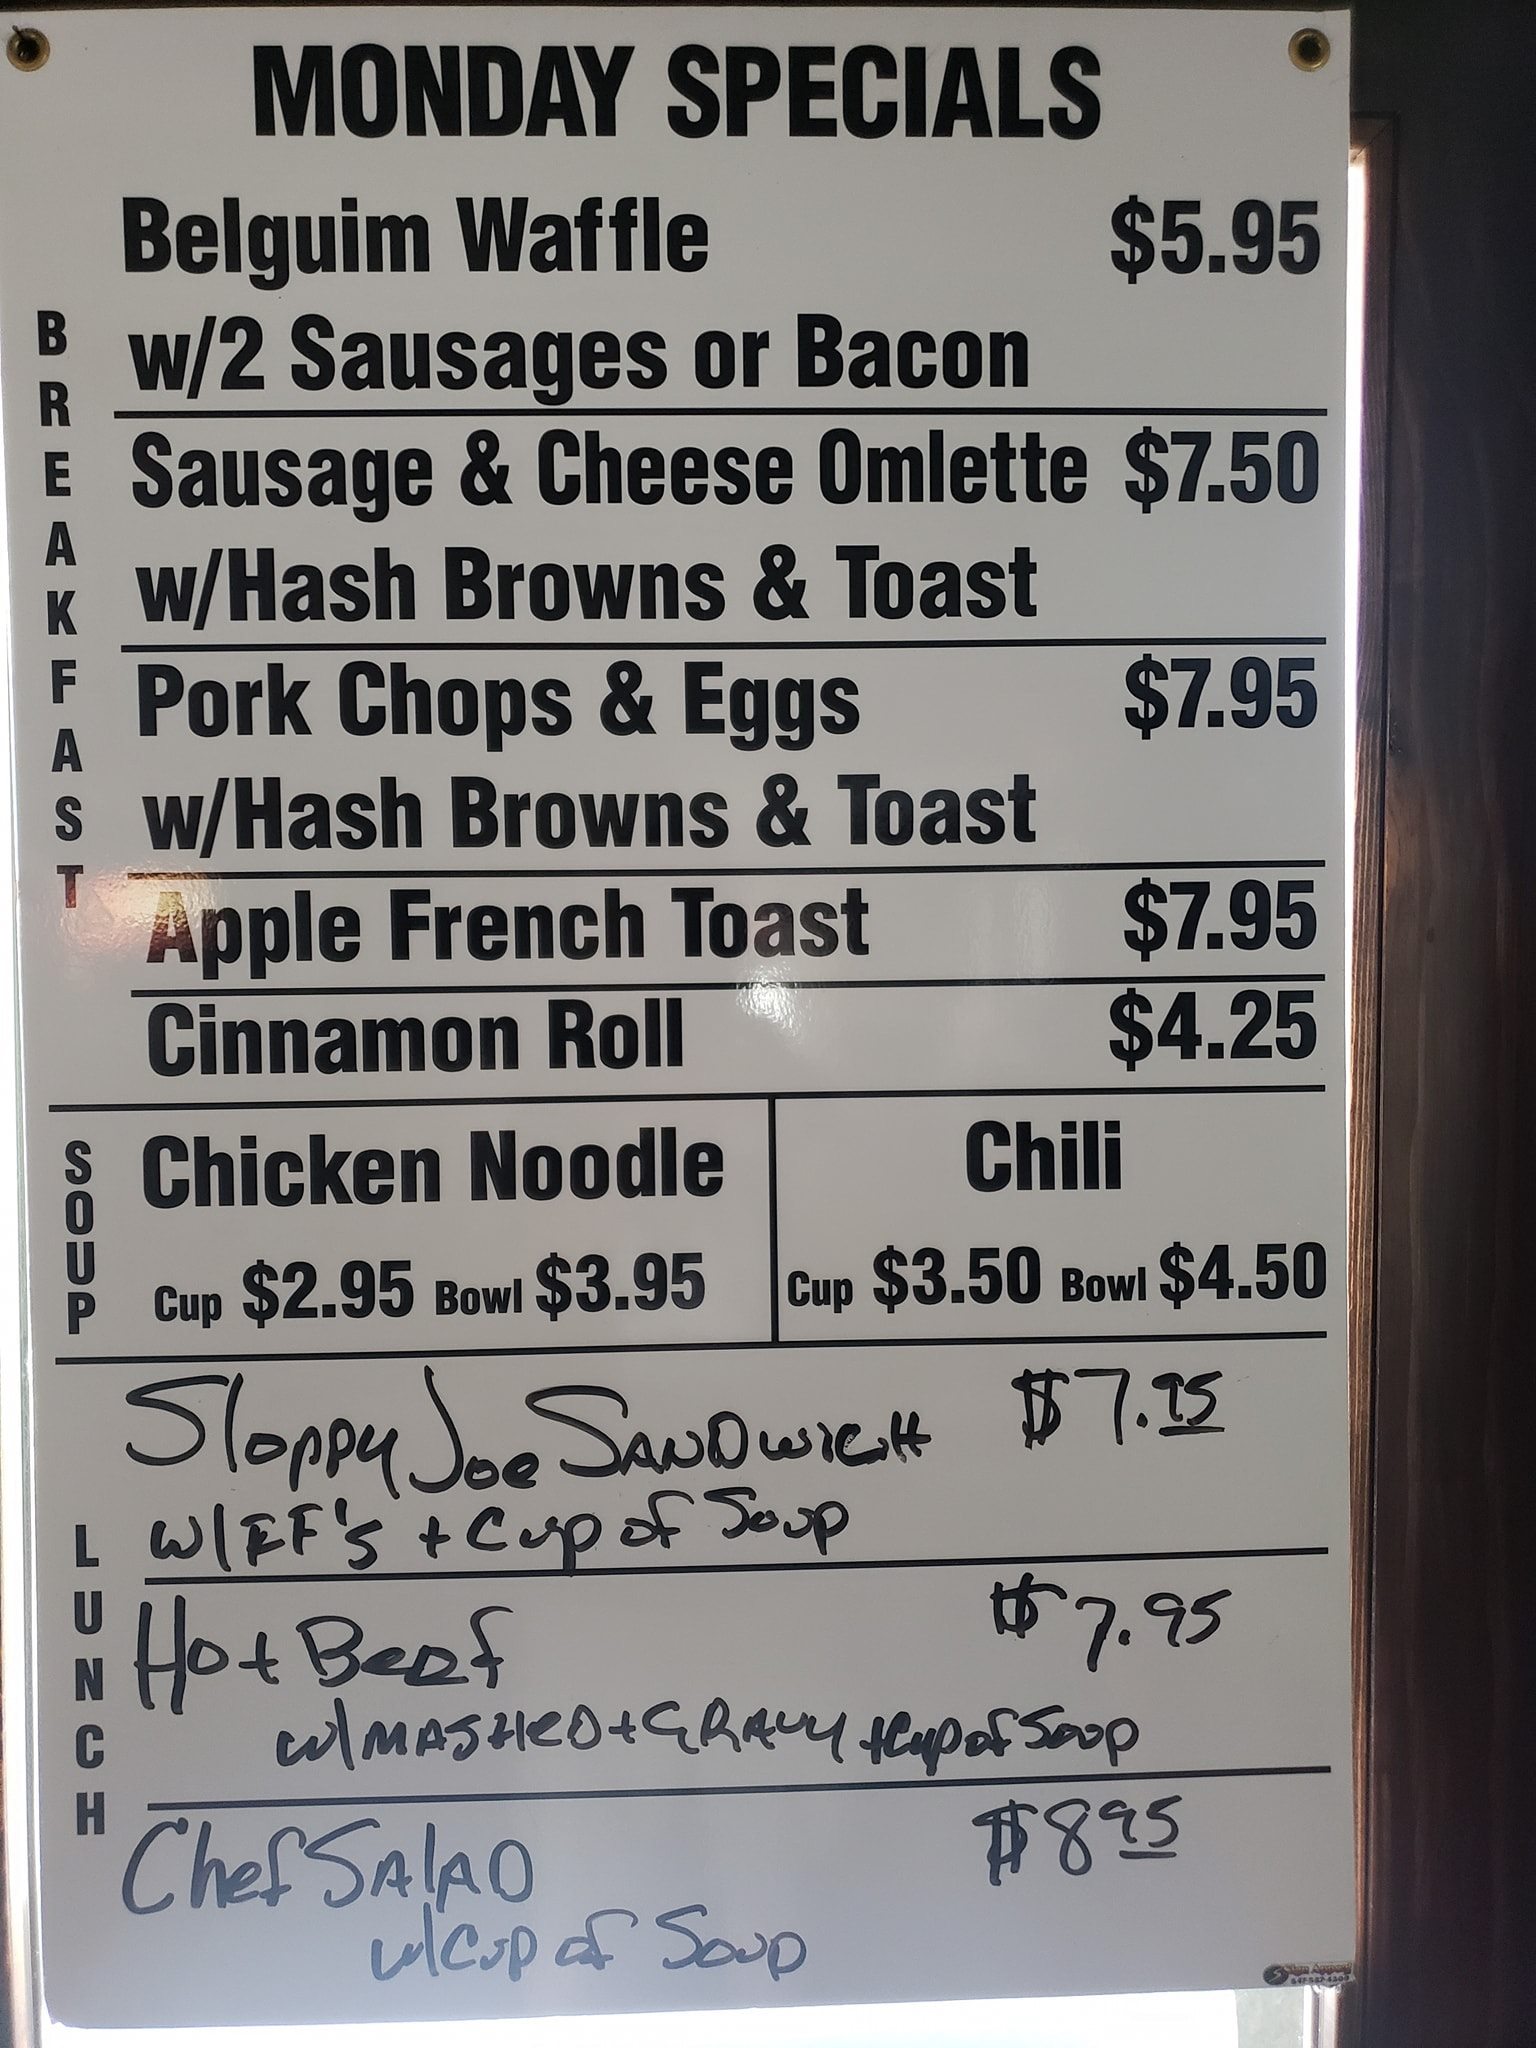 MONDAY SPECIALS
BREAKFAST
Belguim Waffle $5.95
w/2 Sausages or Bacon
Sausage & Cheese Omlette $7.50
w/Hash Browns & Toast
Pork Chops & Eggs $7.95
w/Hash Browns & Toast
Apple French Toast $7.95
Cinnamon Roll $4.25
SOUP
Chicken Noodle
Cup $2.95 Bowl $3.95
Chili
Cup $3.50 Bowl $4.50
LUNCH
Sloppy Joe SANDWICH $7.95
w/FF's + Cup of Soup
Hot Beef $7.95
w/MASHED + GRAVY + Cup of Soup
Chef SALAD $8.95
w/Cup of Soup
Sign Appeal